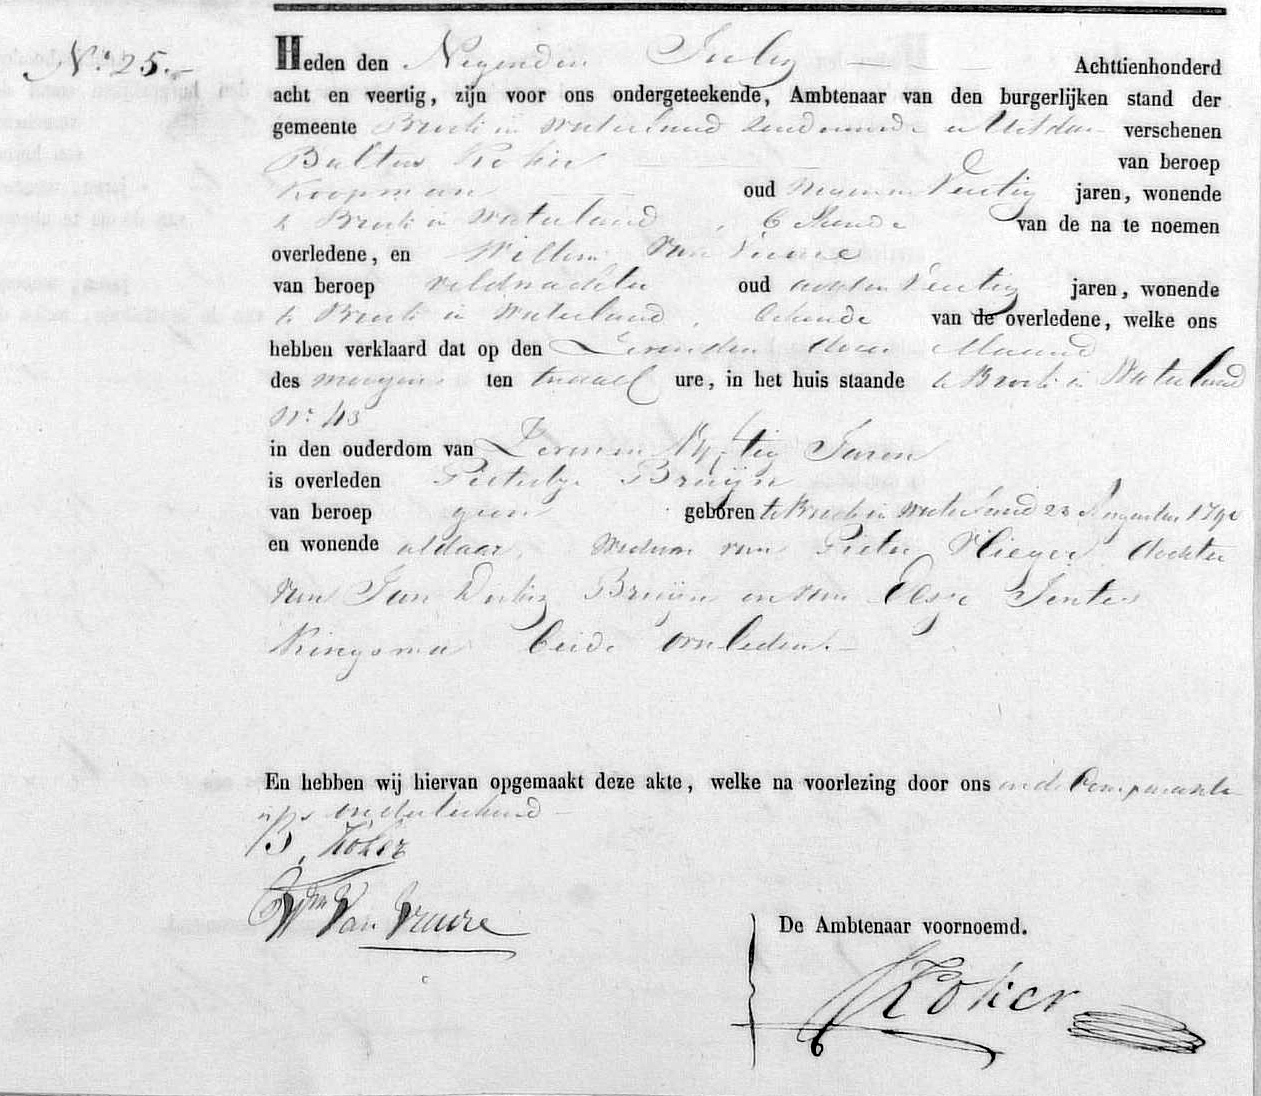 N.o 25.
Heden den Negenden July Achttienhonderd
acht en veertig, zijn voor ons ondergeteekende, Ambtenaar van den burgerlijken stand der
gemeente Broek in Waterland Zuiderwoude en Uitdam verschenen
Baltus Koker van beroep
Koopman oud Negen en Veertig jaren, wonende
te Broek in Waterland, bekende van de na te noemen
overledene, en Willem van
van beroep veldwachter oud achten Veertig jaren, wonende
te Broek in Waterland, bekende van de overledene, welke ons
hebben verklaard dat op den Zevenden dezer Maand
des morgens ten twaalf ure, in het huis staande te Broek in Waterland
N.o 43
in den ouderdom van Zeven en Vyftig Jaren
is overleden Pietertje Bruijn
van beroep geen geboren te Broek in Waterland 23 Augustus 1790
en wonende aldaar, Weduwe van Pieter Vlieger dochter
van Jan Dirksz Bruijn en van Elsje Jentes
Ringsma beide overleden.
En hebben wij hiervan opgemaakt deze akte, welke na voorlezing door ons en de Comparanten
is onderteekend
B. Koker
Wm Van
De Ambtenaar voornoemd.
Koker